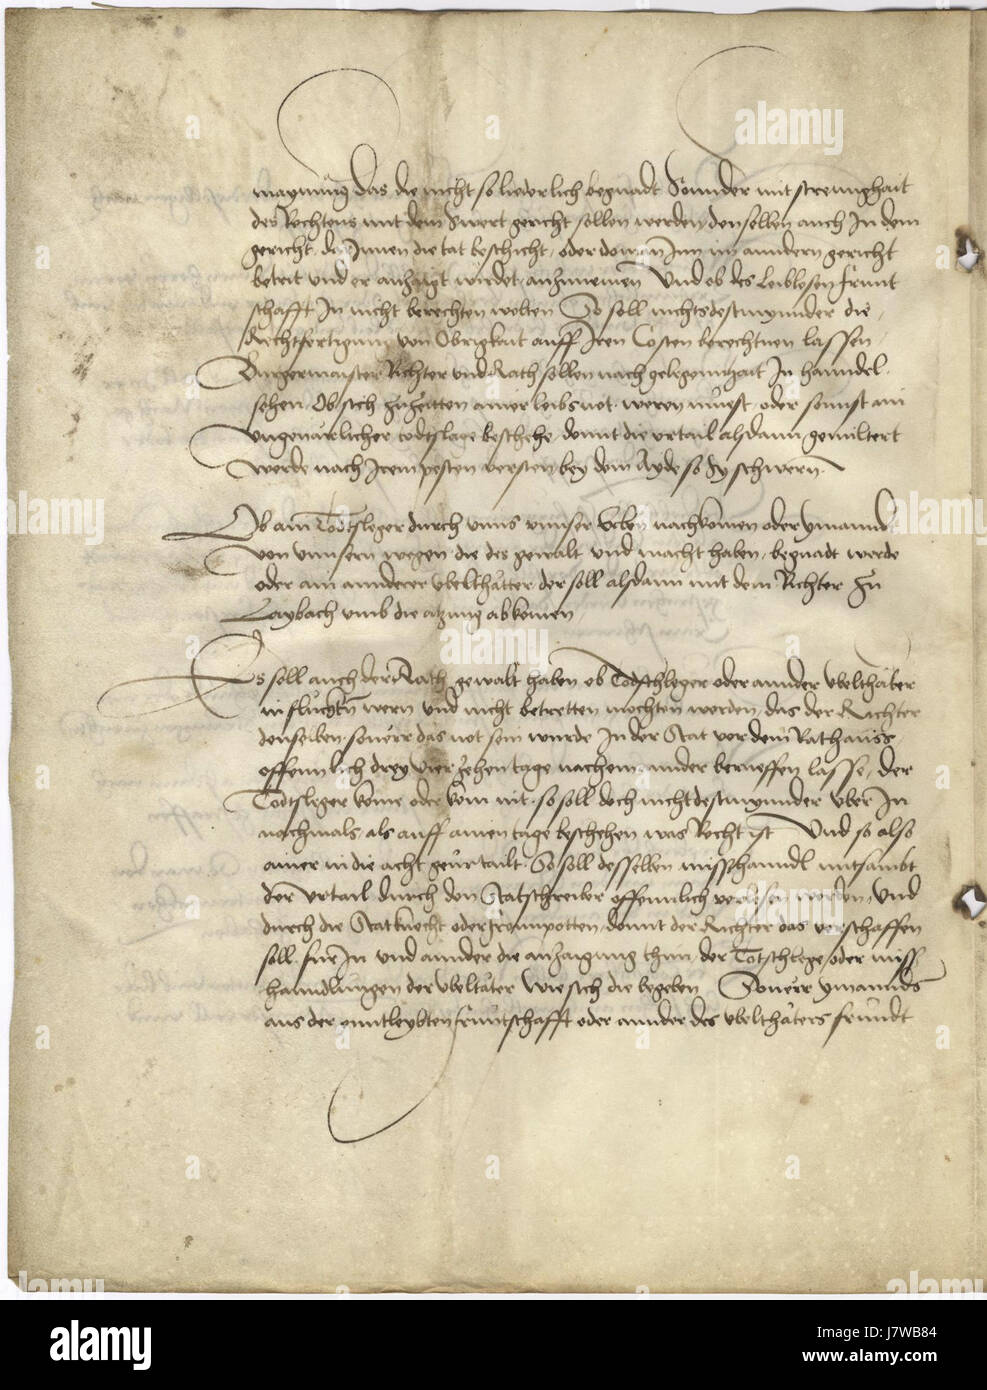 maynung das die nicht so liederlich begnadt Sonnder mit strennghait
des Rechtens mit dem Swert gericht sollen werden, den sellen auch In dem
gericht, dar Innen die tat beschicht, oder darinn Inn im anndern gericht
betert und er anzaigt wirdet, anzunemen Und ob des Leiblosen frunt
schafft In nicht berechten wolten So soll nichtsdestmynnder die
Rechtfertigung von Obrigkait auff Iren Costen berechtnen lassen
Burgermaister Richter und Rath sollen nach gelegennhait In hanndel
sehen, Ob sich zuzeitten ainer leibs not weren muest, oder sonnst ain
ungevarlicher todtslage beschehe, damit die urtail alsdann gemiltert
werde nach Irem pesten versten bey dem Ayde so Sy schwern
Ob ain Todtsleger durch unns unnser Erben nachkomen oder ymannd
von unnsern wegen die des gewalt und macht haben, begnadt werde
oder ain annderer ubelthatter, der soll alsdann mit dem Richter zu
Laybach umb die atzung abkomen
Es soll auch der Rath gewalt haben ob Todtschleger oder annder ubelthater
in fluchten wern und nicht betretten mochten werden, das der Richter
denselben, soverr das not sein wurde In der Stat vor dem Rathauss
offennlich drey vierzehen tage nacheinannder berueffen lasse, der
Todtsleger kome oder kom nit, so soll doch nichtdestmynnder uber In
nochmals als auff ainen tage beschehen was Recht ist Und so also
ainer in die acht geurtailt, So soll desselben misshanndl mitsambt
der urtail durch den Statschreiber offennlich verlesen werden, Und
durch die Statknecht oder fronnpotten, damit der Richter das verschaffen
soll, fur In und annder die anzaigung thun, der Totschlege oder miss
hanndlungen der ubeltater wie sich die begeben Soverr ymannds
aus der enntleybten fruntschafft oder annder des ubelthaters frundt
alamy
J7WB84
www.alamy.com